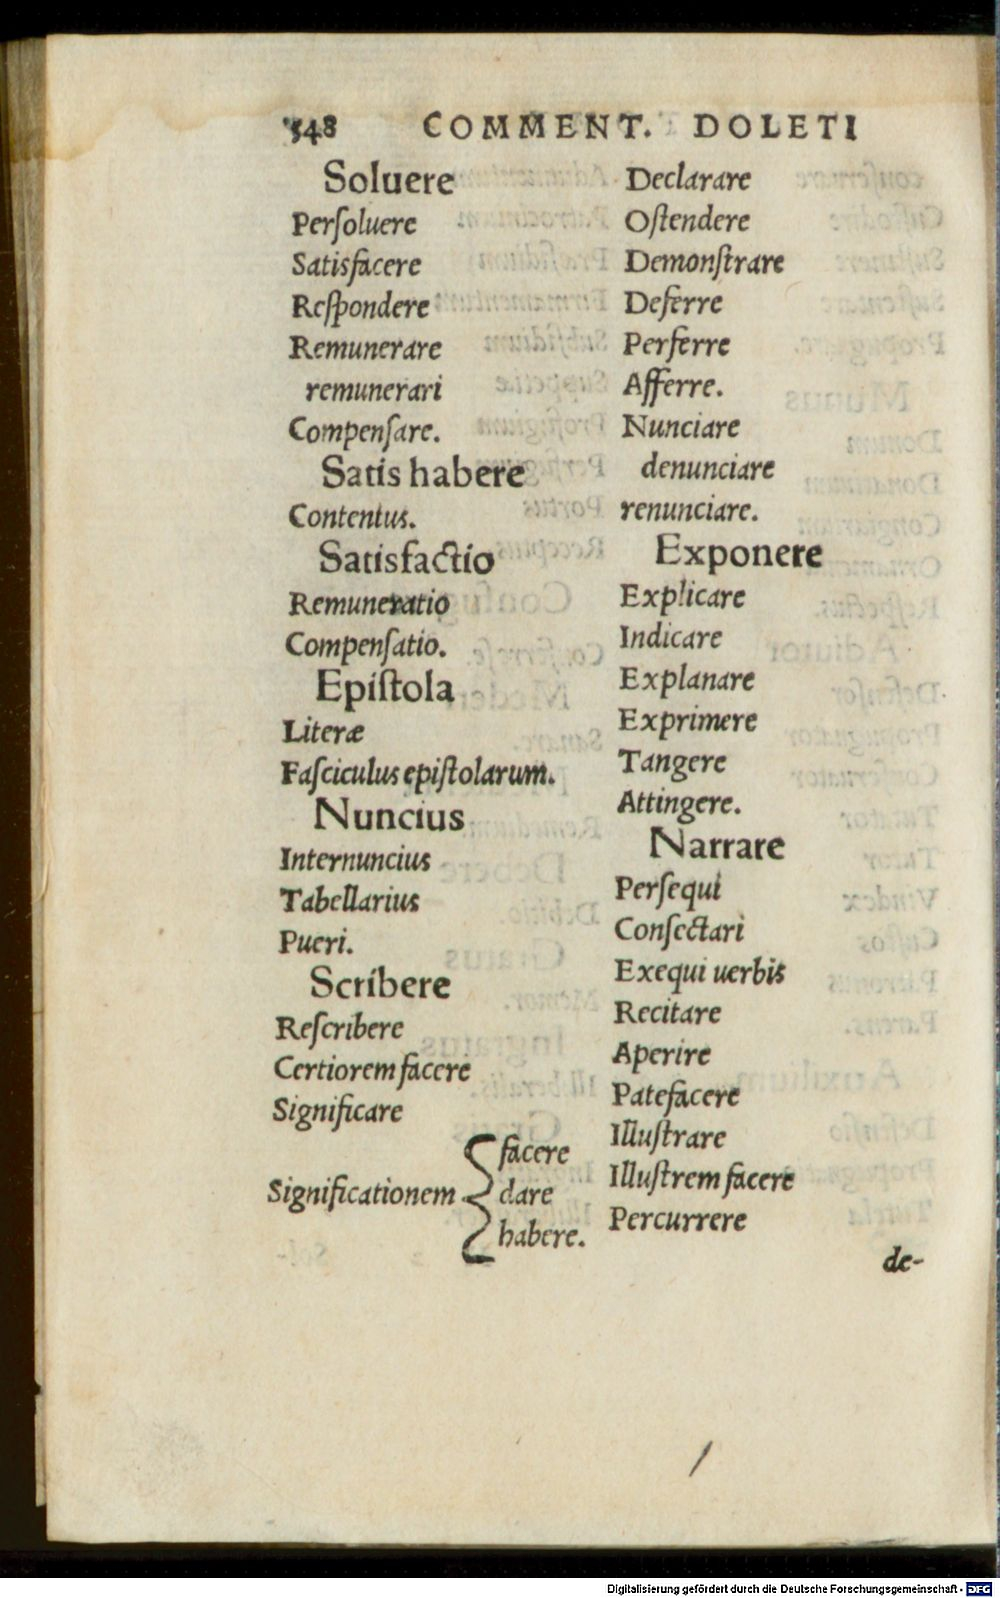 548 COMMENT. DOLETI
Soluere
Perſoluere
Satisfacere
Reſpondere
Remunerare
remunerari
Compenſare.
Satis habere
Contentus.
Satisfactio
Remuneratio
Compenſatio.
Epiſtola
Literæ
Faſciculus epiſtolarum.
Nuncius
Internuncius
Tabellarius
Pueri.
Scribere
Reſcribere
Certiorem facere
Significare
Significationem { facere
dare
habere.
Declarare
Oſtendere
Demonſtrare
Deferre
Perferre
Afferre.
Nunciare
denunciare
renunciare.
Exponere
Explicare
Indicare
Explanare
Exprimere
Tangere
Attingere.
Narrare
Perſequi
Conſectari
Exequi uerbis
Recitare
Aperire
Patefacere
Illuſtrare
Illuſtrem facere
Percurrere
de-
Digitalisierung gefördert durch die Deutsche Forschungsgemeinschaft - DFG